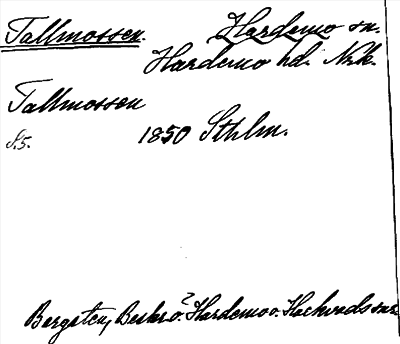 Tallmossen. Hardemo sn.
Hardemo hd. Nrk.
Tallmossen
S. 5. 1850 Sthlm.
Bergsten, Beskr. ö. Hardemo o. Hackvads snr